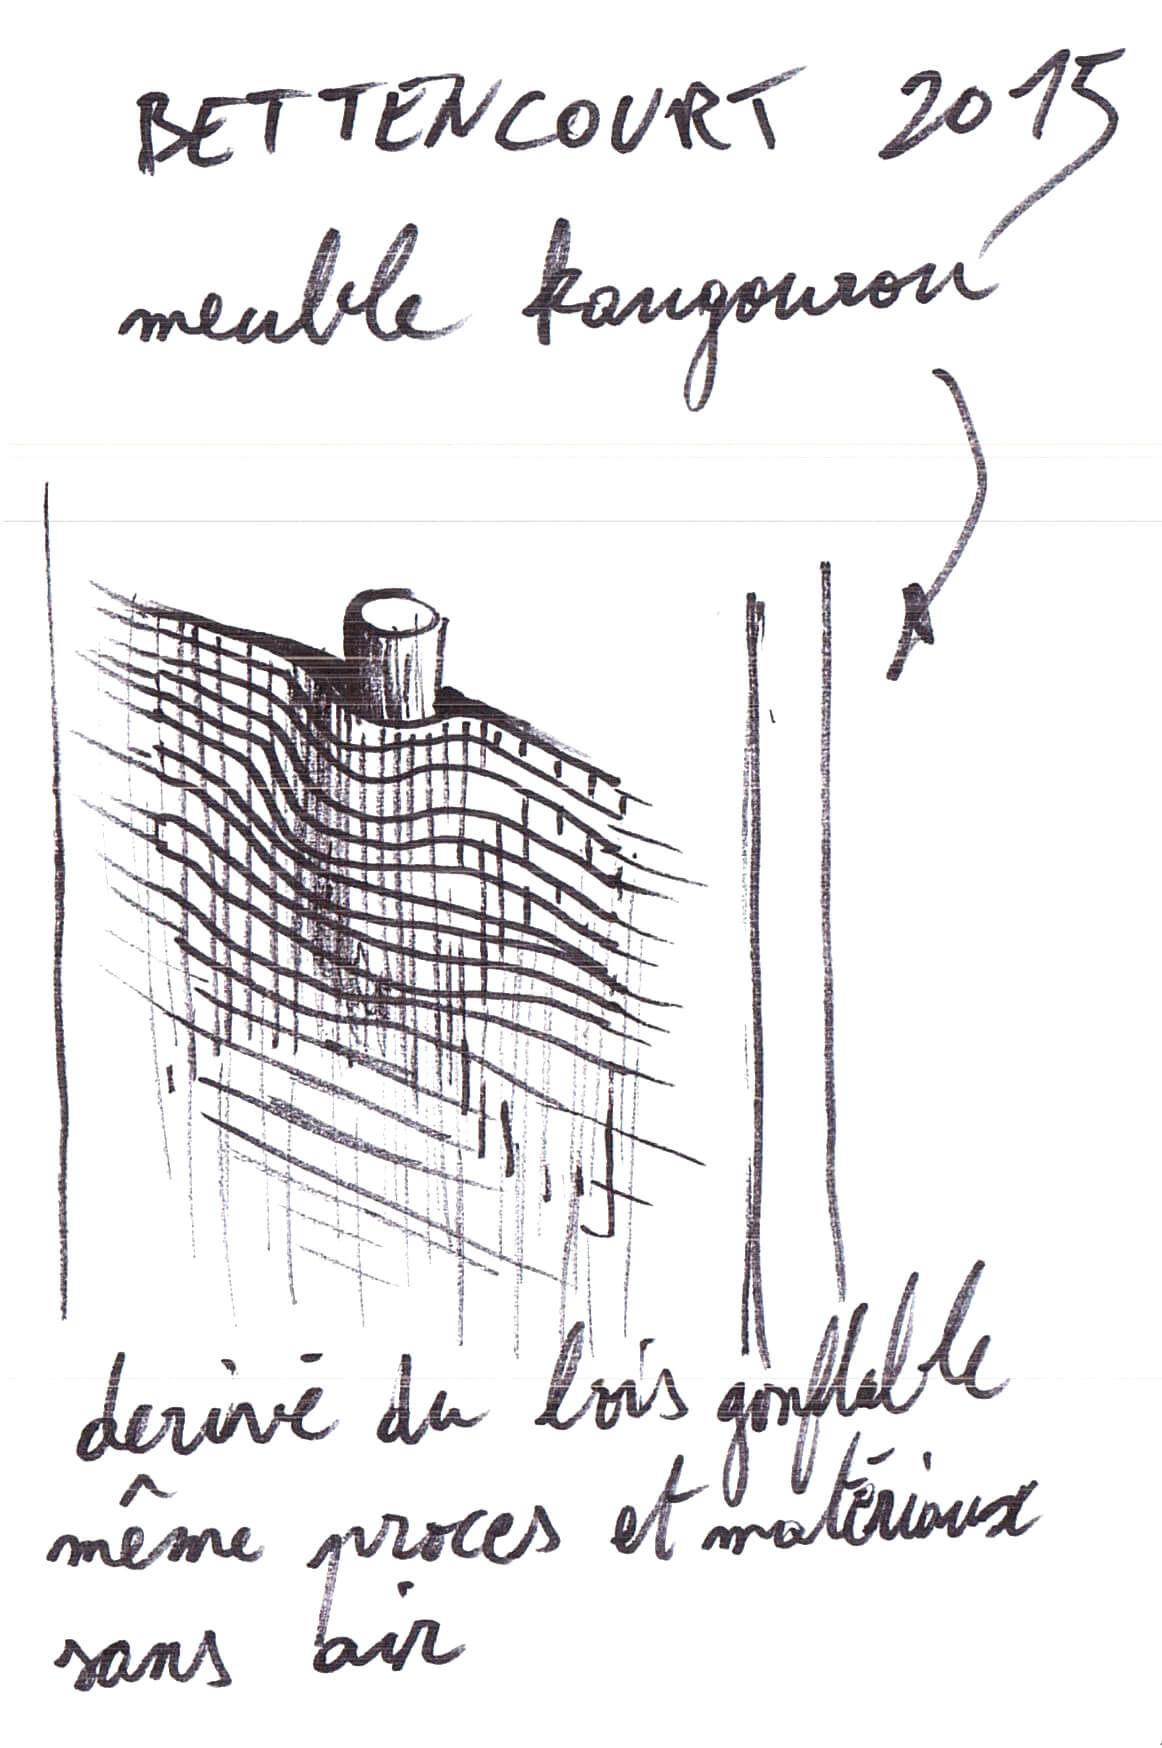 BETTENCOURT 2015
meuble kangourou
derivé du bois gonflable
même proces et matériaux
sans air